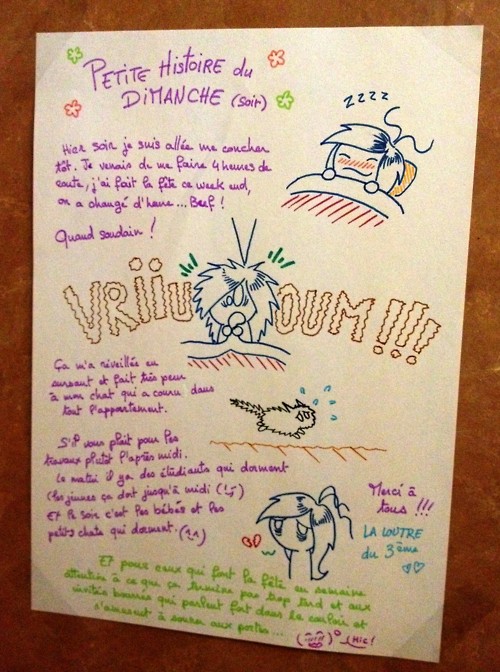 PETITE HISTOIRE du
DIMANCHE (soir)
zzzz
Hier soir je suis allée me coucher
tôt. Je venais de me faire 4 heures de
route, j'ai fait la fête ce week end,
on a changé d'heure... Bref !
Quand soudain !
VRiiiuuOUM!!!
Ça m'a réveillée en
sursaut et fait très peur
à mon chat qui a couru dans
tout l'appartement.
S'il vous plait pour les
travaux plutôt l'après midi.
Le matin il y a des étudiants qui dorment
(les jeunes ça dort jusqu'à midi)
Et le soir c'est les bébés et les
petits chats qui dorment. (^^)
Merci à
tous !!!
LA LOUTRE
du 3ème
Et pour ceux qui font la fête en semaine
attention à ce que ça termine pas trop tard et aux
invités bourrés qui parlent fort dans le couloir et
s'amusent à sonner aux portes...
Hic!